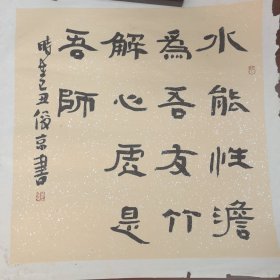 水能性澹
為吾友竹
解心虛是
吾師
時在己丑俊京書